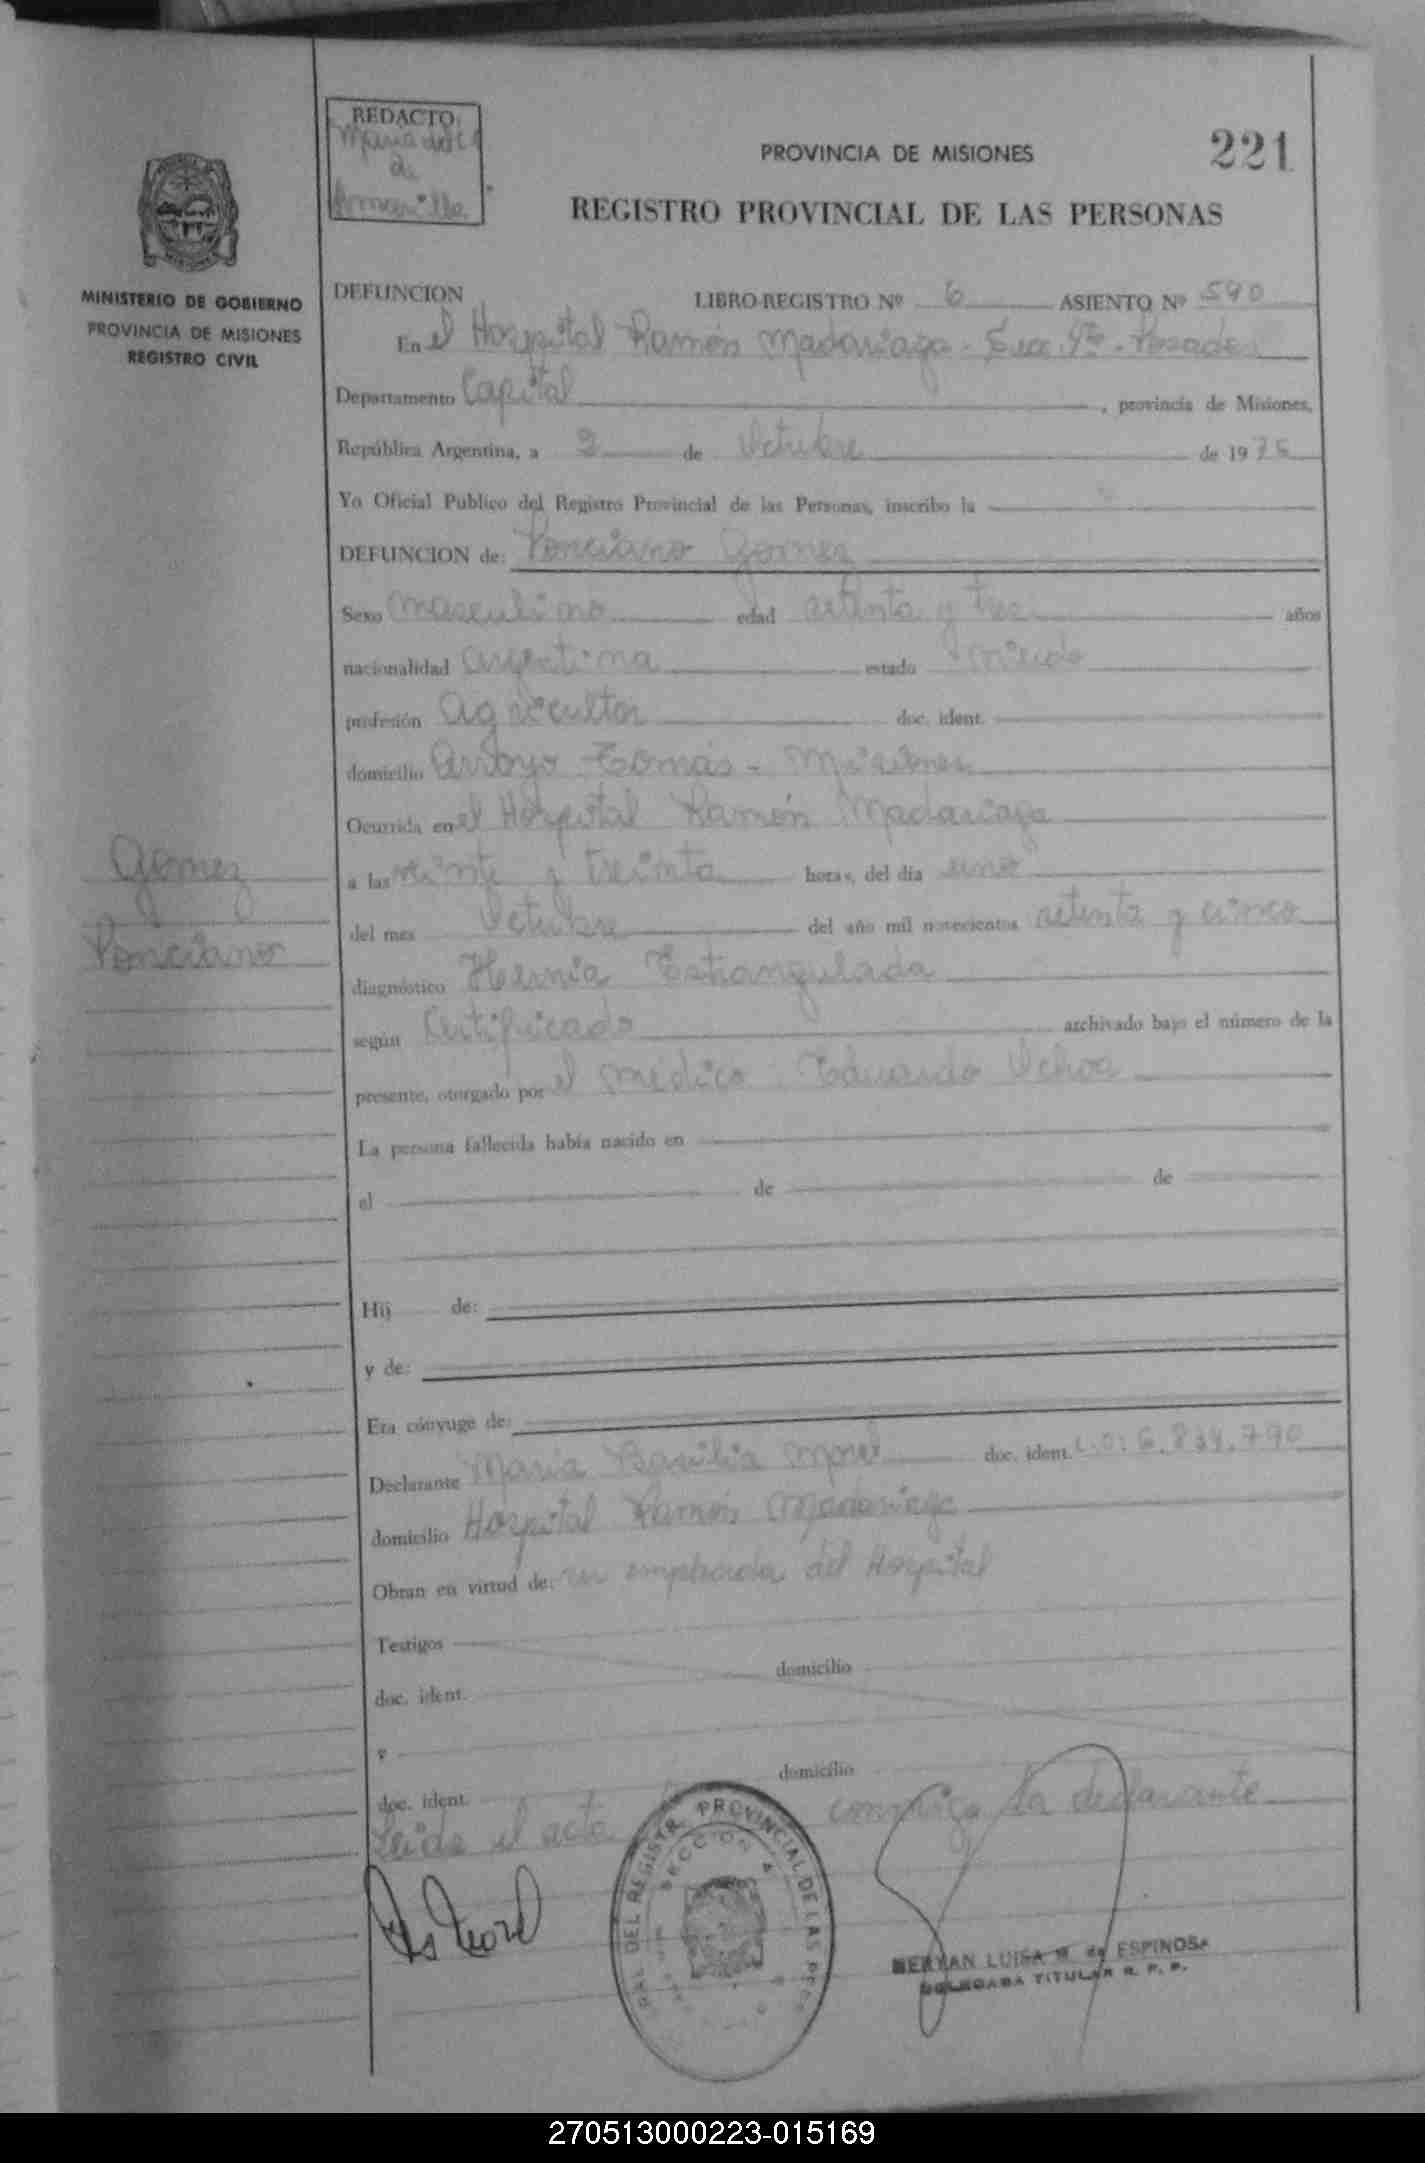 REDACTO
Maria del C
de
Amarilla
PROVINCIA DE MISIONES
221
REGISTRO PROVINCIAL DE LAS PERSONAS
MINISTERIO DE GOBIERNO
PROVINCIA DE MISIONES
REGISTRO CIVIL
DEFUNCION LIBRO-REGISTRO Nº 6 ASIENTO Nº 590
En el Hospital Ramón Madariaga - Secc. 4ta - Posadas
Departamento Capital, provincia de Misiones,
República Argentina, a 2 de Octubre de 1975
Yo Oficial Publico del Registro Provincial de las Personas, inscribo la
DEFUNCION de: Ponciano Gomez
Sexo masculino edad setenta y tres años
nacionalidad argentina estado viudo
profesión Agricultor doc. ident.
domicilio Arroyo Tomás - Misiones
Ocurrida en el Hospital Ramón Madariaga
a las veinte y treinta horas, del día uno
del mes Octubre del año mil novecientos setenta y cinco
diagnóstico Hernia Estrangulada
según Certificado archivado bajo el número de la
presente, otorgado por el médico Eduardo Ochoa
La persona fallecida había nacido en
el de de
Hij de:
y de:
Era cónyuge de:
Declarante Maria Basilia Morel doc. ident. L.C: 6.834.790
domicilio Hospital Ramón Madariaga
Obran en virtud de: ser empleada del Hospital
Testigos
domicilio
doc. ident.
y
domicilio
doc. ident.
Leida el acta conmigo la declarante
Gomez
Ponciano
DEL REGISTR. PROVINCIAL DE LAS PERS
SECCION 4
MERYAN LUISA M. de ESPINOSA
DELEGADA TITULAR R. P. P.
270513000223-015169